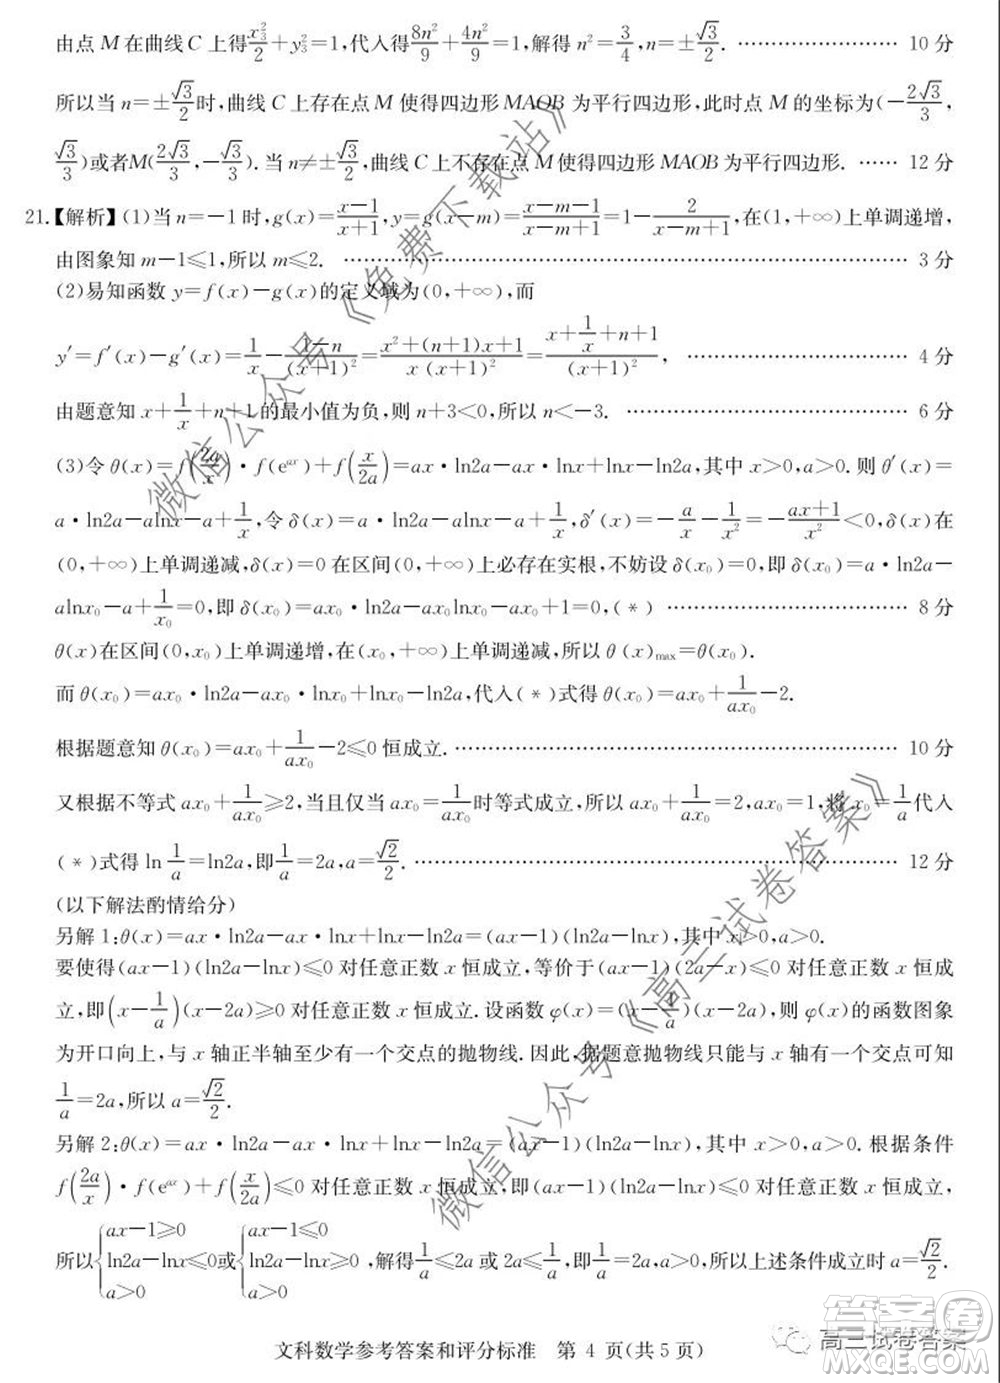 由点 M 在曲线 C 上得 x₃²/2+y₃²=1,代入得 8n²/9+4n²/9=1,解得 n²=3/4,n=±√3/2. ………… 10 分
所以当 n=±√3/2 时,曲线 C 上存在点 M 使得四边形 MAOB 为平行四边形,此时点 M 的坐标为(-2√3/3,
√3/3)或者M(2√3/3,-√3/3).当 n≠±√3/2,曲线 C 上不存在点 M 使得四边形 MAOB 为平行四边形. …… 12 分
21.【解析】(1)当 n=-1 时,g(x)=(x-1)/(x+1),y=g(x-m)=(x-m-1)/(x-m+1)=1-2/(x-m+1),在(1,+∞)上单调递增,
由图象知 m-1≤1,所以 m≤2. ………… 3 分
(2)易知函数 y=f(x)-g(x)的定义域为(0,+∞),而
y′=f′(x)-g′(x)=1/x-(1-n)/(x+1)²=(x²+(n+1)x+1)/(x(x+1)²)=(x+1/x+n+1)/(x+1)², ………… 4 分
由题意知 x+1/x+n+1 的最小值为负,则 n+3<0,所以 n<-3. ………… 6 分
(3)令 θ(x)=f(2a/x)·f(e^{ax})+f(x/2a)=ax·ln2a-ax·lnx+lnx-ln2a,其中 x>0,a>0.则 θ′(x)=
a·ln2a-alnx-a+1/x,令 δ(x)=a·ln2a-alnx-a+1/x,δ′(x)=-a/x-1/x²=-(ax+1)/x²<0,δ(x)在
(0,+∞)上单调递减,δ(x)=0 在区间(0,+∞)上必存在实根,不妨设 δ(x₀)=0,即 δ(x₀)=a·ln2a-
alnx₀-a+1/x₀=0,即 δ(x₀)=ax₀·ln2a-ax₀lnx₀-ax₀+1=0,(*) ………… 8 分
θ(x)在区间(0,x₀)上单调递增,在(x₀,+∞)上单调递减,所以 θ(x)max=θ(x₀).
而 θ(x₀)=ax₀·ln2a-ax₀·lnx₀+lnx₀-ln2a,代入(*)式得 θ(x₀)=ax₀+1/ax₀-2.
根据题意知 θ(x₀)=ax₀+1/ax₀-2≤0 恒成立. ………… 10 分
又根据不等式 ax₀+1/ax₀≥2,当且仅当 ax₀=1/ax₀时等式成立,所以 ax₀+1/ax₀=2,ax₀=1,将 x₀=1/a代入
(*)式得 ln 1/a=ln2a,即1/a=2a,a=√2/2. ………… 12 分
(以下解法酌情给分)
另解 1:θ(x)=ax·ln2a-ax·lnx+lnx-ln2a=(ax-1)(ln2a-lnx),其中 x>0,a>0.
要使得(ax-1)(ln2a-lnx)≤0 对任意正数 x 恒成立,等价于(ax-1)(2a-x)≤0 对任意正数 x 恒成
立,即(x-1/a)(x-2a)≥0 对任意正数 x 恒成立.设函数 φ(x)=(x-1/a)(x-2a),则 φ(x)的函数图象
为开口向上,与 x 轴正半轴至少有一个交点的抛物线.因此,据题意抛物线只能与 x 轴有一个交点可知
1/a=2a,所以 a=√2/2.
另解 2:θ(x)=ax·ln2a-ax·lnx+lnx-ln2a=(ax-1)(ln2a-lnx),其中 x>0,a>0.根据条件
f(2a/x)·f(e^{ax})+f(x/2a)≤0 对任意正数 x 恒成立,即(ax-1)(ln2a-lnx)≤0 对任意正数 x 恒成立,
所以{ax-1≥0 ln2a-lnx≤0 a>0 或{ax-1≤0 ln2a-lnx≥0 a>0 ,解得1/a≤2a 或 2a≤1/a,即1/a=2a(a>0),所以上述条件成立时 a=√2/2.
文科数学参考答案和评分标准 第 4 页(共 5 页)
微信公众号《免费下载站》
微信公众号《高三试卷答案》
高三试卷答案
答案圈
MXQE.COM